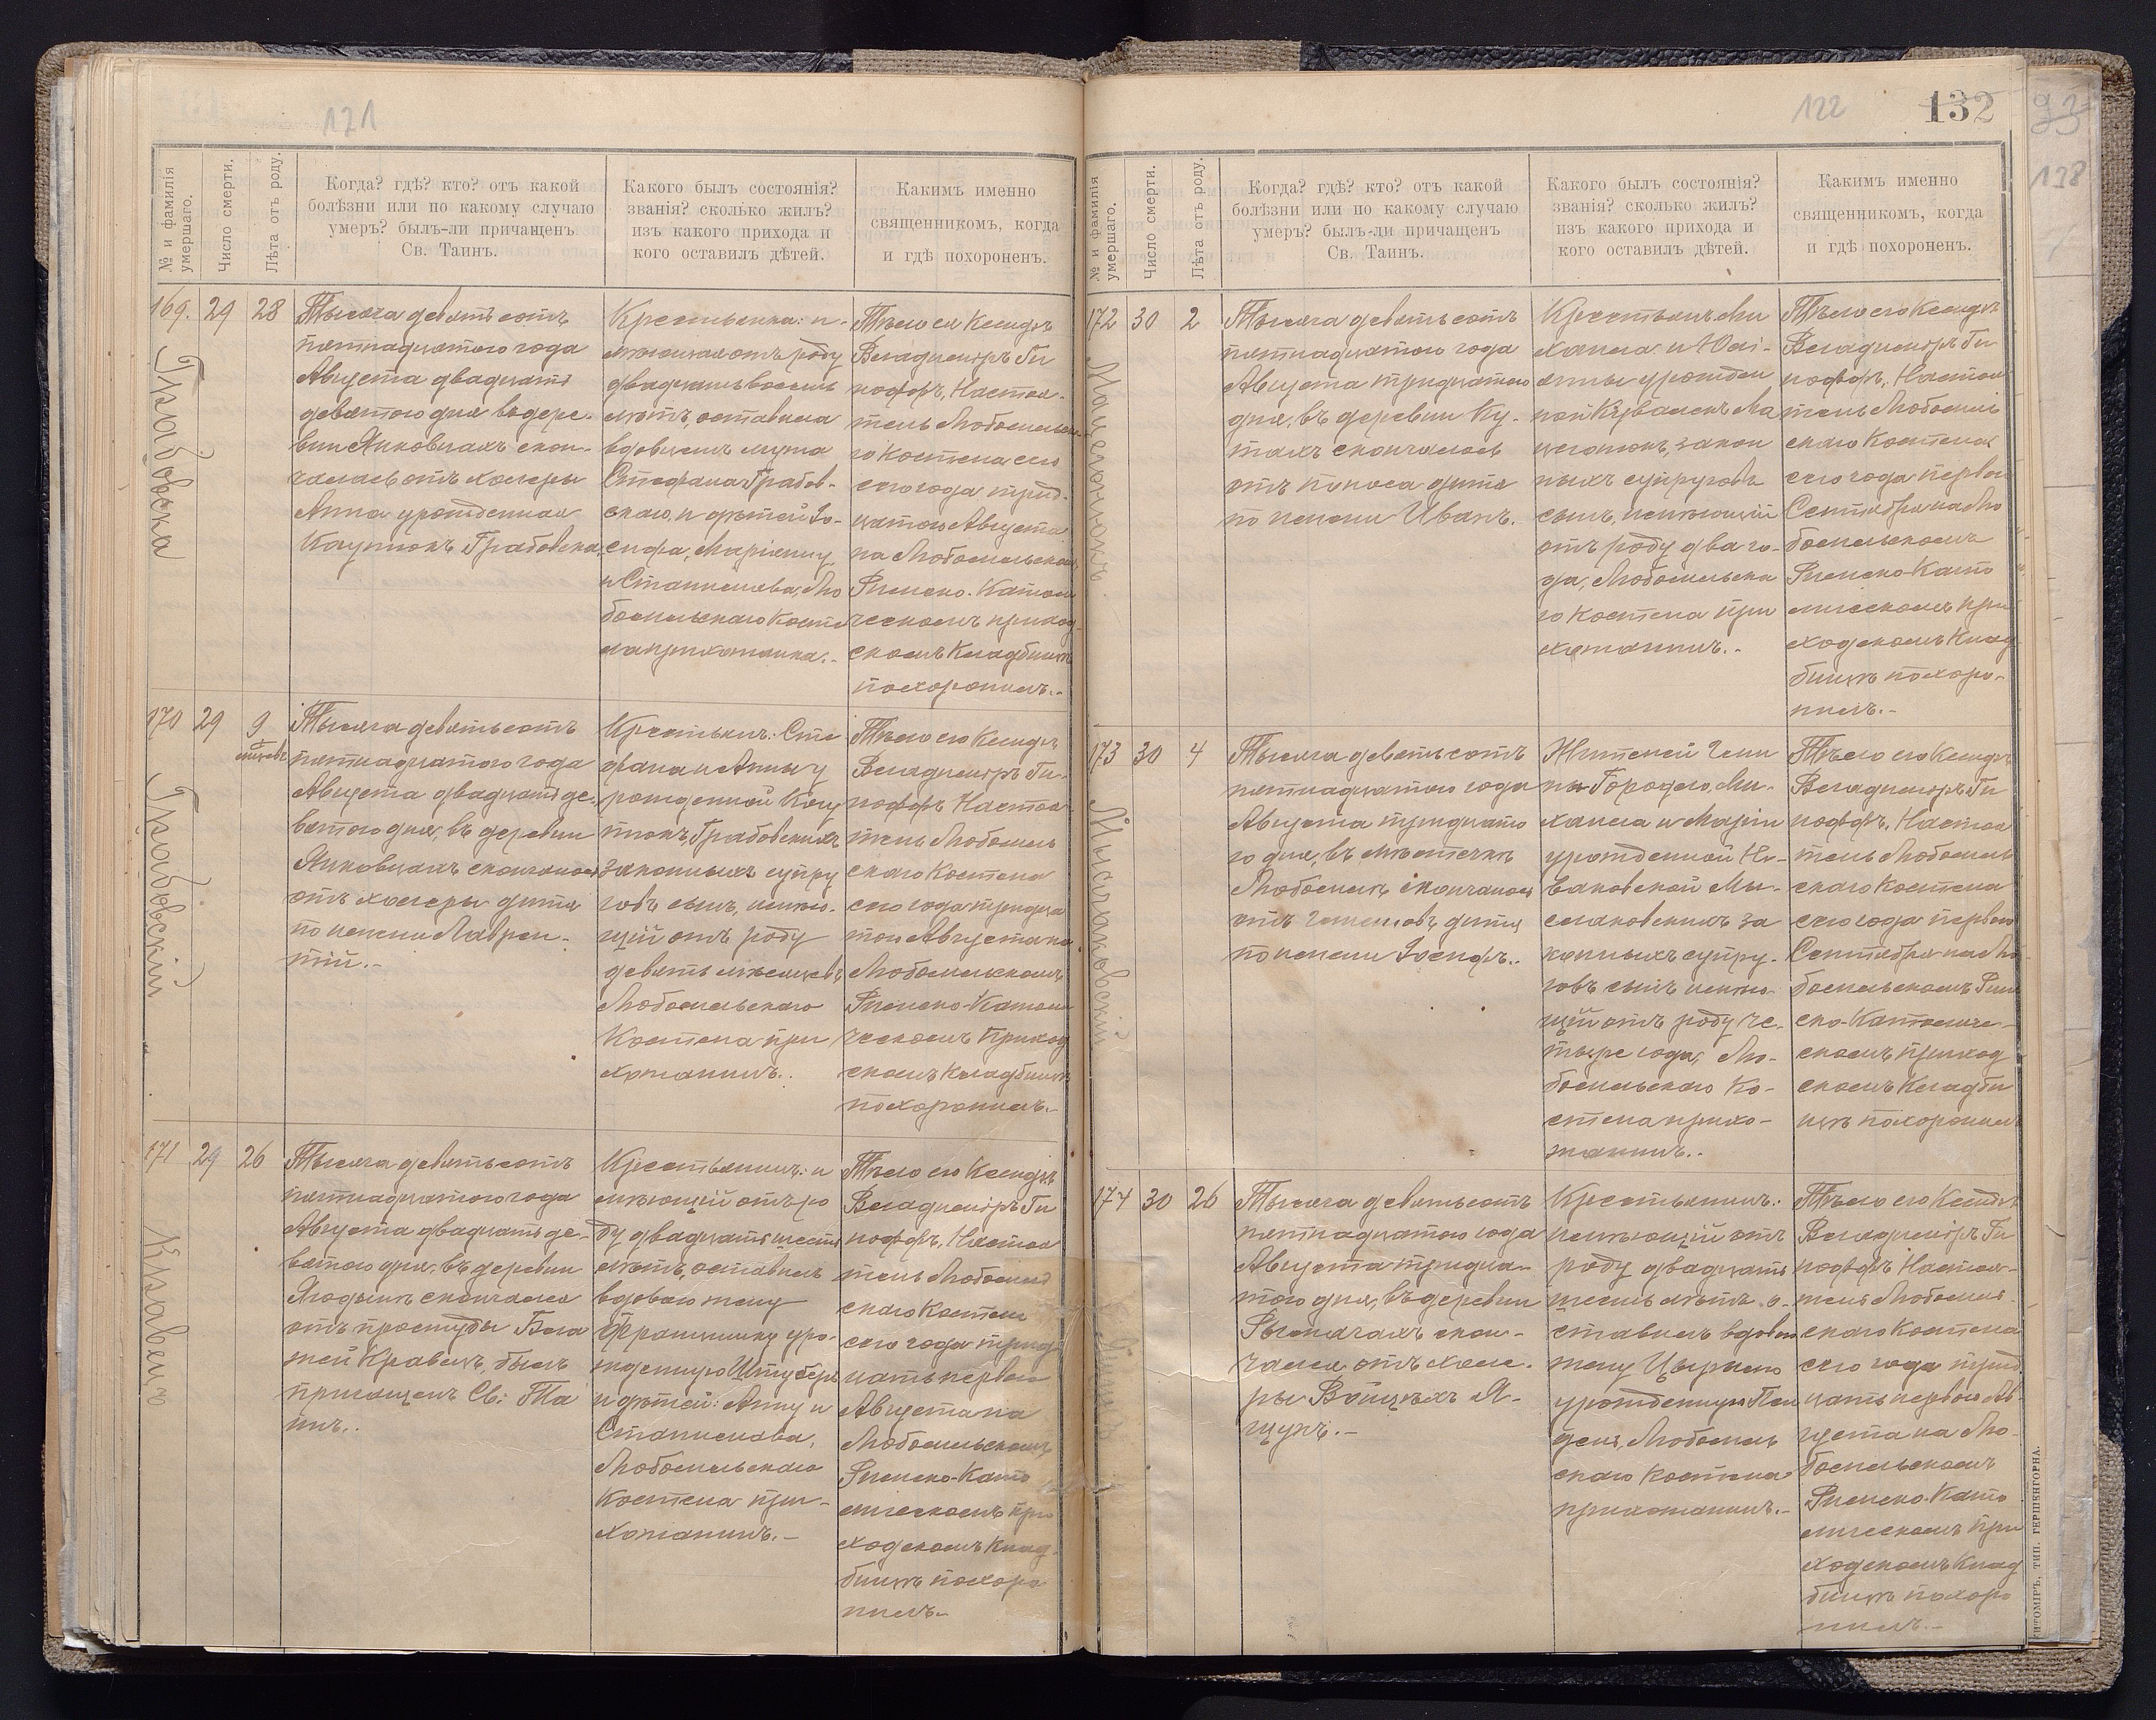 121
№ и фамилія умершаго.
Число смерти.
Лѣта отъ роду.
Когда? гдѣ? кто? отъ какой
болѣзни или по какому случаю
умеръ? былъ-ли причащенъ
Св. Таинъ.
Какого былъ состоянія?
званія? сколько жилъ?
изъ какого прихода и
кого оставилъ дѣтей.
Какимъ именно
священникомъ, когда
и гдѣ похороненъ.
169. 29 28
Грабовска
Тысяча девятьсотъ
пятнадцатого года
Августа двадцать
девятого дня въ дере-
вни Янковцахъ скон-
чалась отъ холеры
Анна урожденная
Каупюкъ Грабовска
Крестьянка: и-
мѣющая отъ роду
двадцать восемь
лѣтъ, оставила
вдовцемъ мужа
Стефана Грабов-
скаго, и дѣтей: Іо-
сифа, Маріанну
и Станислава, Лю
бомльскаго Косте
ла прихожанка.-
Тѣло ея Ксендзъ
Владиміръ Ги
поффъ, Настоя-
тель Любомльска
го Костела сего
сего года трид-
цатого Августа
на Любомльском
Римско-Католи
ческомъ приход
скомъ Кладбищѣ
похоронилъ.-
170 29 9
мѣсяцевъ
Грабовскій
Тысяча девятьсотъ
пятнадцатого года
Августа двадцать де-
вятого дня, въ деревни
Янковцахъ скончалось
отъ холеры дитя
по имени Лаврен-
тій.-
Крестьянъ: Сте
фана и Анны у
рожденной Кау
пюкъ, Грабовскихъ
законныхъ супру
говъ сынъ, имѣю-
щій отъ роду
девять мѣсяцевъ
Любомльскаго
Костела при
хожанинъ.-
Тѣло его Ксендзъ
Владиміръ Ги-
поффъ Настоя
тель Любомль
скаго Костела
сего года тридца
того Августа на
Любомльскомъ
Римско-Католи
ческомъ Приход
скомъ Кладбищѣ
похоронилъ.-
171 29 26
Кравецъ
Тысяча девятьсотъ
пятнадцатого года
Августа двадцать де-
вятого дня, въ деревни
скончался
отъ простуды Бла
жей Кравецъ, былъ
причащенъ Св: Та
инъ.-
Крестьянинъ: и
мѣющій отъ ро
ду двадцать шесть
лѣтъ, оставилъ
вдовою жену
Францишку уро-
жденную
и дѣтей: Анну и
Станислава,
Любомльскаго
Костела при-
хожанинъ.-
Тѣло его Ксендзъ
Владиміръ Ги
поффъ, Настоя
тель Любомль
скаго Костела
сего года трид
цать первого
Августа на
Любомльскомъ
Римско-Като
лическомъ при
ходскомъ Клад-
бищѣ похоро
нилъ.-
122
132
93
138
№ и фамилія умершаго.
Число смерти.
Лѣта отъ роду.
Когда? гдѣ? кто? отъ какой
болѣзни или по какому случаю
умеръ? былъ-ли причащенъ
Св. Таинъ.
Какого былъ состоянія?
званія? сколько жилъ?
изъ какого прихода и
кого оставилъ дѣтей.
Какимъ именно
священникомъ, когда
и гдѣ похороненъ.
172 30 2
Мацегонюкъ
Тысяча девятьсотъ
пятнадцатого года
Августа тридцатого
дня, въ деревни Ку-
тахъ скончалось
отъ поноса дитя
по имени Иванъ.
Крестьянъ: Ми
хаила и Юлі-
анны урожден
ной Коваликъ Ма
цегонюкъ, закон
ныхъ супруговъ
сынъ, имѣющій
отъ роду два го-
да, Любомльска
го Костела при
хожанинъ.-
Тѣло его Ксендзъ
Владиміръ Ги
поффъ, Настоя
тель Любомль
скаго Костела
сего года первого
Сентября на Лю
бомльскомъ
Римско-Като
лическомъ при
ходскомъ Клад
бищѣ похоро-
нилъ.-
173 30 4
Мыслаковскій
Тысяча девятьсотъ
пятнадцатого года
Августа тридцато
го дня, въ мѣстечкѣ
Любомлѣ скончалось
отъ дитя
по имени Іосифъ.-
Жителей
Городло, Ми-
хаила и Маріи
урожденной Но-
ваковской Мы-
слаковскихъ за
конныхъ супру-
говъ сынъ имѣю-
щій отъ роду че-
тыре года, Лю-
бомльскаго Ко-
стела прихо-
жанинъ.-
Тѣло его Ксендзъ
Владиміръ Ги
поффъ, Настоя
тель Любомль
скаго Костела
сего года первого
Сентября на Лю
бомльскомъ Рим
ско-Католиче-
скомъ приход
скомъ Кладби
щѣ похоронилъ
174 30 26
Тысяча девятьсотъ
пятнадцатого года
Августа тридца-
того дня, въ деревни
Рымачахъ скон-
чался отъ холе-
ры Войцѣхъ Я-
щукъ.-
Крестьянинъ:
имѣющій отъ
роду двадцать
шесть лѣтъ о-
ставилъ вдовою
жену
урожденную
Любомль
скаго Костела
прихожанинъ.-
Тѣло его Ксендзъ
Владиміръ Ги
поффъ Настоя-
тель Любомль-
скаго Костела
сего года трид
цать первого Ав-
густа на Лю-
бомльскомъ
Римско-Като
лическомъ при
ходскомъ Клад
бищѣ похоро
нилъ.-
ЖИТОМІРЪ, ТИП. ГЕРШЕНГОРНА.